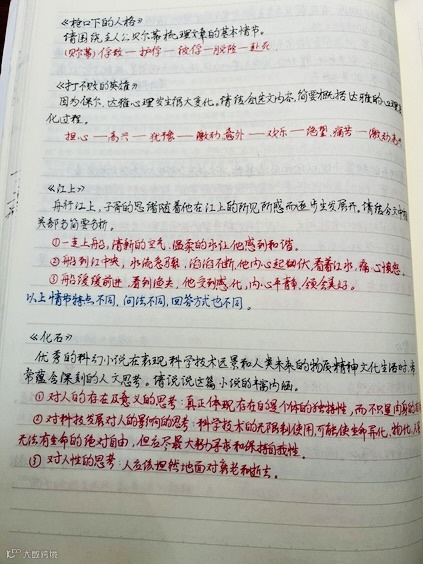 《枪口下的人格》
请围绕主人公贝尔蒂梳理文章的基本情节。
(贝尔蒂)俘敌—护俘—被俘—脱险—赴死
《打不败的英雄》
因为保尔,达雅心理发生很大变化。请结合选文内容,简要概括达雅的心理变
化过程。
担心—高兴—犹豫—激动,意外—欢乐—绝望,痛苦—(激动,
《江上》
舟行江上,子胥的思绪随着他在江上的所见所感而逐步生发展开。请结合文中
关部分简要分析。
①一走上船,清新的空气、温柔的水让他感到和谐。
②船到江中央,水流急,滔滔不断,他内心起伏,看着江水,痛心
③船缓缓前进,看到渔夫,他受到感化,内心平静,领会美好。
以上情节特点不同,问法不同,回答方式也不同。
《化石》
优秀的科幻小说在表现科学技术远景和人类未来的物质精神文化生活时,常
常蕴含深刻的人文思考。请说说这篇小说的丰富内涵。
①对人的存在及意义的思考:真正体现存在的是个体的独特性,而不只是肉身的
②对科技发展对人的影响的思考:科学技术的无限制使用,可能使生命异化,物化,人
无法有生命的绝对自由,但应尽最大努力寻求和保持自我性。
③对人性的思考:人应该坦然地面对衰老和逝去。
大数跨境